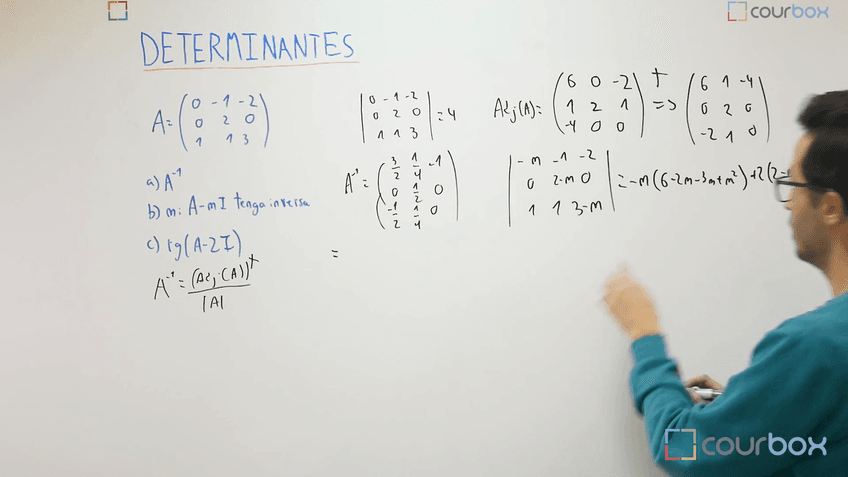 courbox
DETERMINANTES
A = ( 0 -1 -2
0 2 0
1 1 3 )
| 0 -1 -2
0 2 0
1 1 3 | = 4
Adj(A) = ( 6 0 -2
1 2 1
-4 0 0 )^t => ( 6 1 -4
0 2 0
-2 1 0 )
a) A^-1
b) m: A-mI tenga inversa
c) rg(A-2I)
A^-1 = (Adj(A))^t / |A|
A^-1 = ( 3/2 1/4 -1
0 1/2 0
-1/2 1/4 0 )
=
| -m -1 -2
0 2-m 0
1 1 3-m | = -m(6-2m-3m+m²)+2(2-
courbox